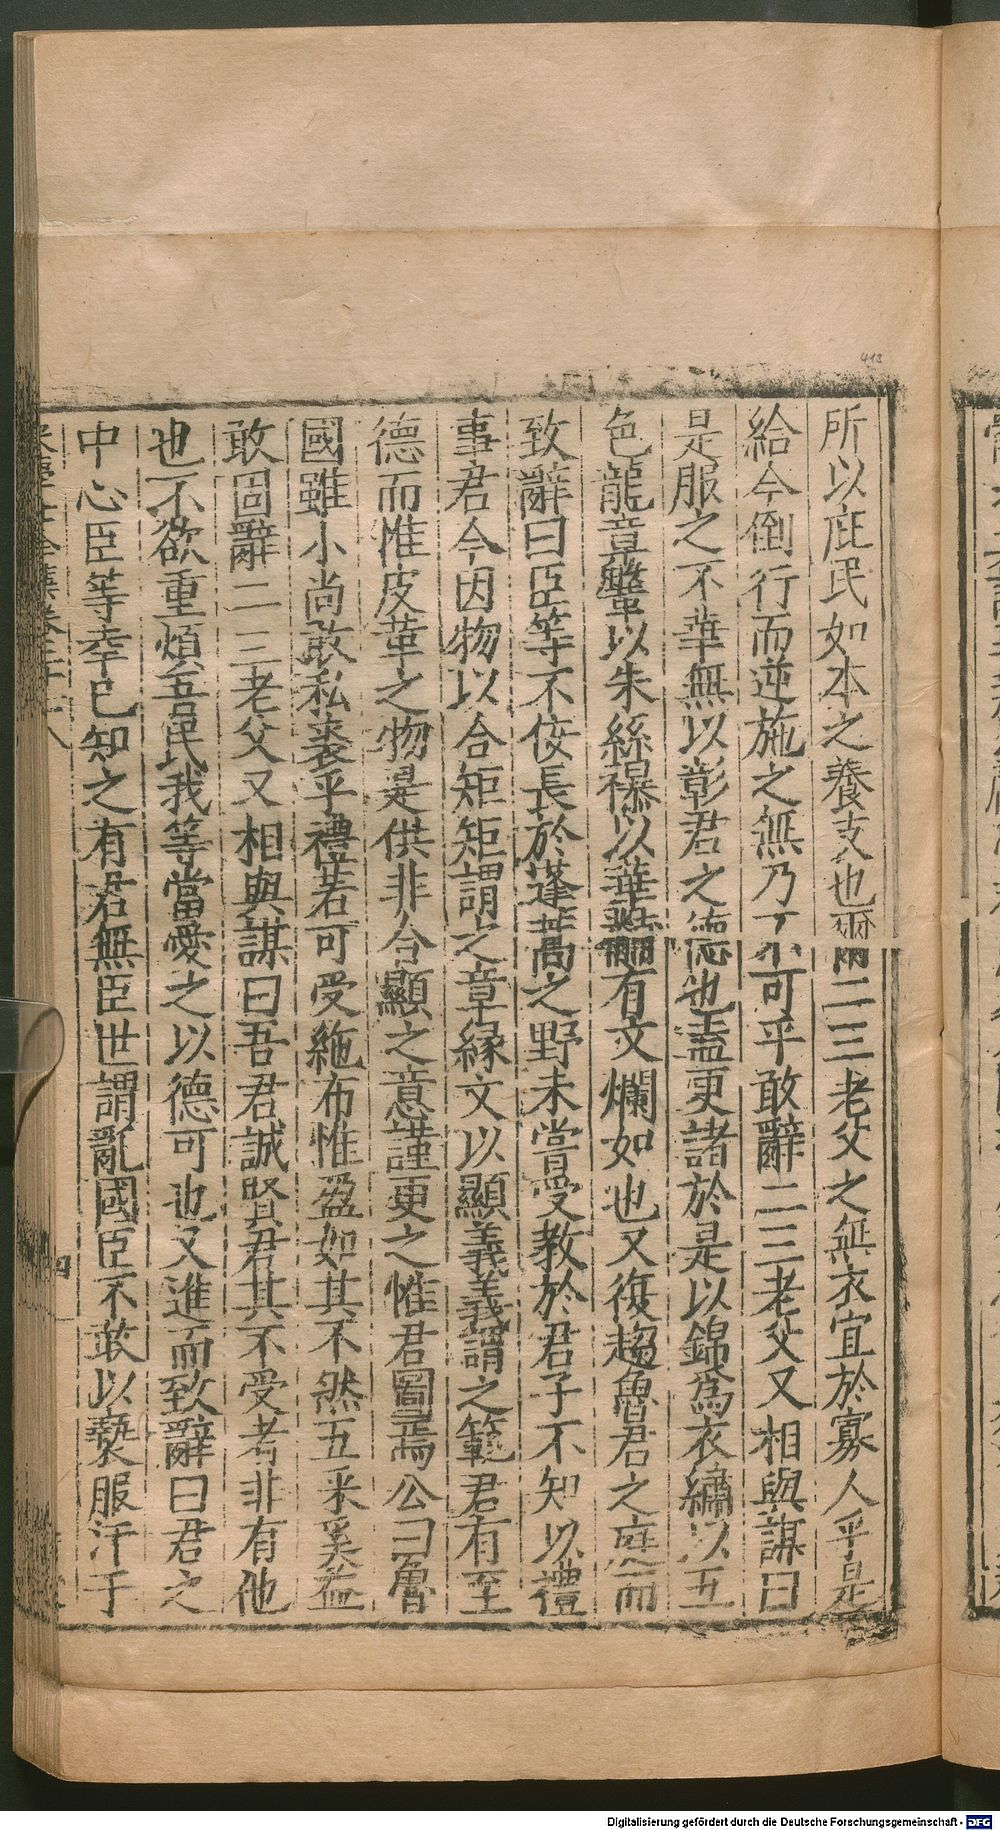 所以庇民如本之養支也爾二三老父之無衣宜於寡人乎是
給今倒行而逆施之無乃不可乎敢辭二三老父又相與謀曰
是服之不華無以彰君之德也盍更諸於是以錦爲衣繡以五
色龍章鞶以朱絲襮以華黼有文爛如也又復趨魯君之庭而
致辭曰臣等不佞長於蓬蒿之野未嘗受教於君子不知以禮
事君今因物以合矩矩謂之章緣文以顯義義謂之範君有至
德而惟皮革之物是供非合顯之意謹更之惟君圖焉公曰魯
國雖小尚敢私褻乎禮若可受絁布惟盈如其不然五采奚益
敢固辭二三老父又相與謀曰吾君誠賢君其不受者非有他
也不欲重煩吾民我等當愛之以德可也又進而致辭曰君之
中心臣等幸已知之有君無臣世謂亂國臣不敢以褻服汙于
四
413
Digitalisierung gefördert durch die Deutsche Forschungsgemeinschaft - DFG